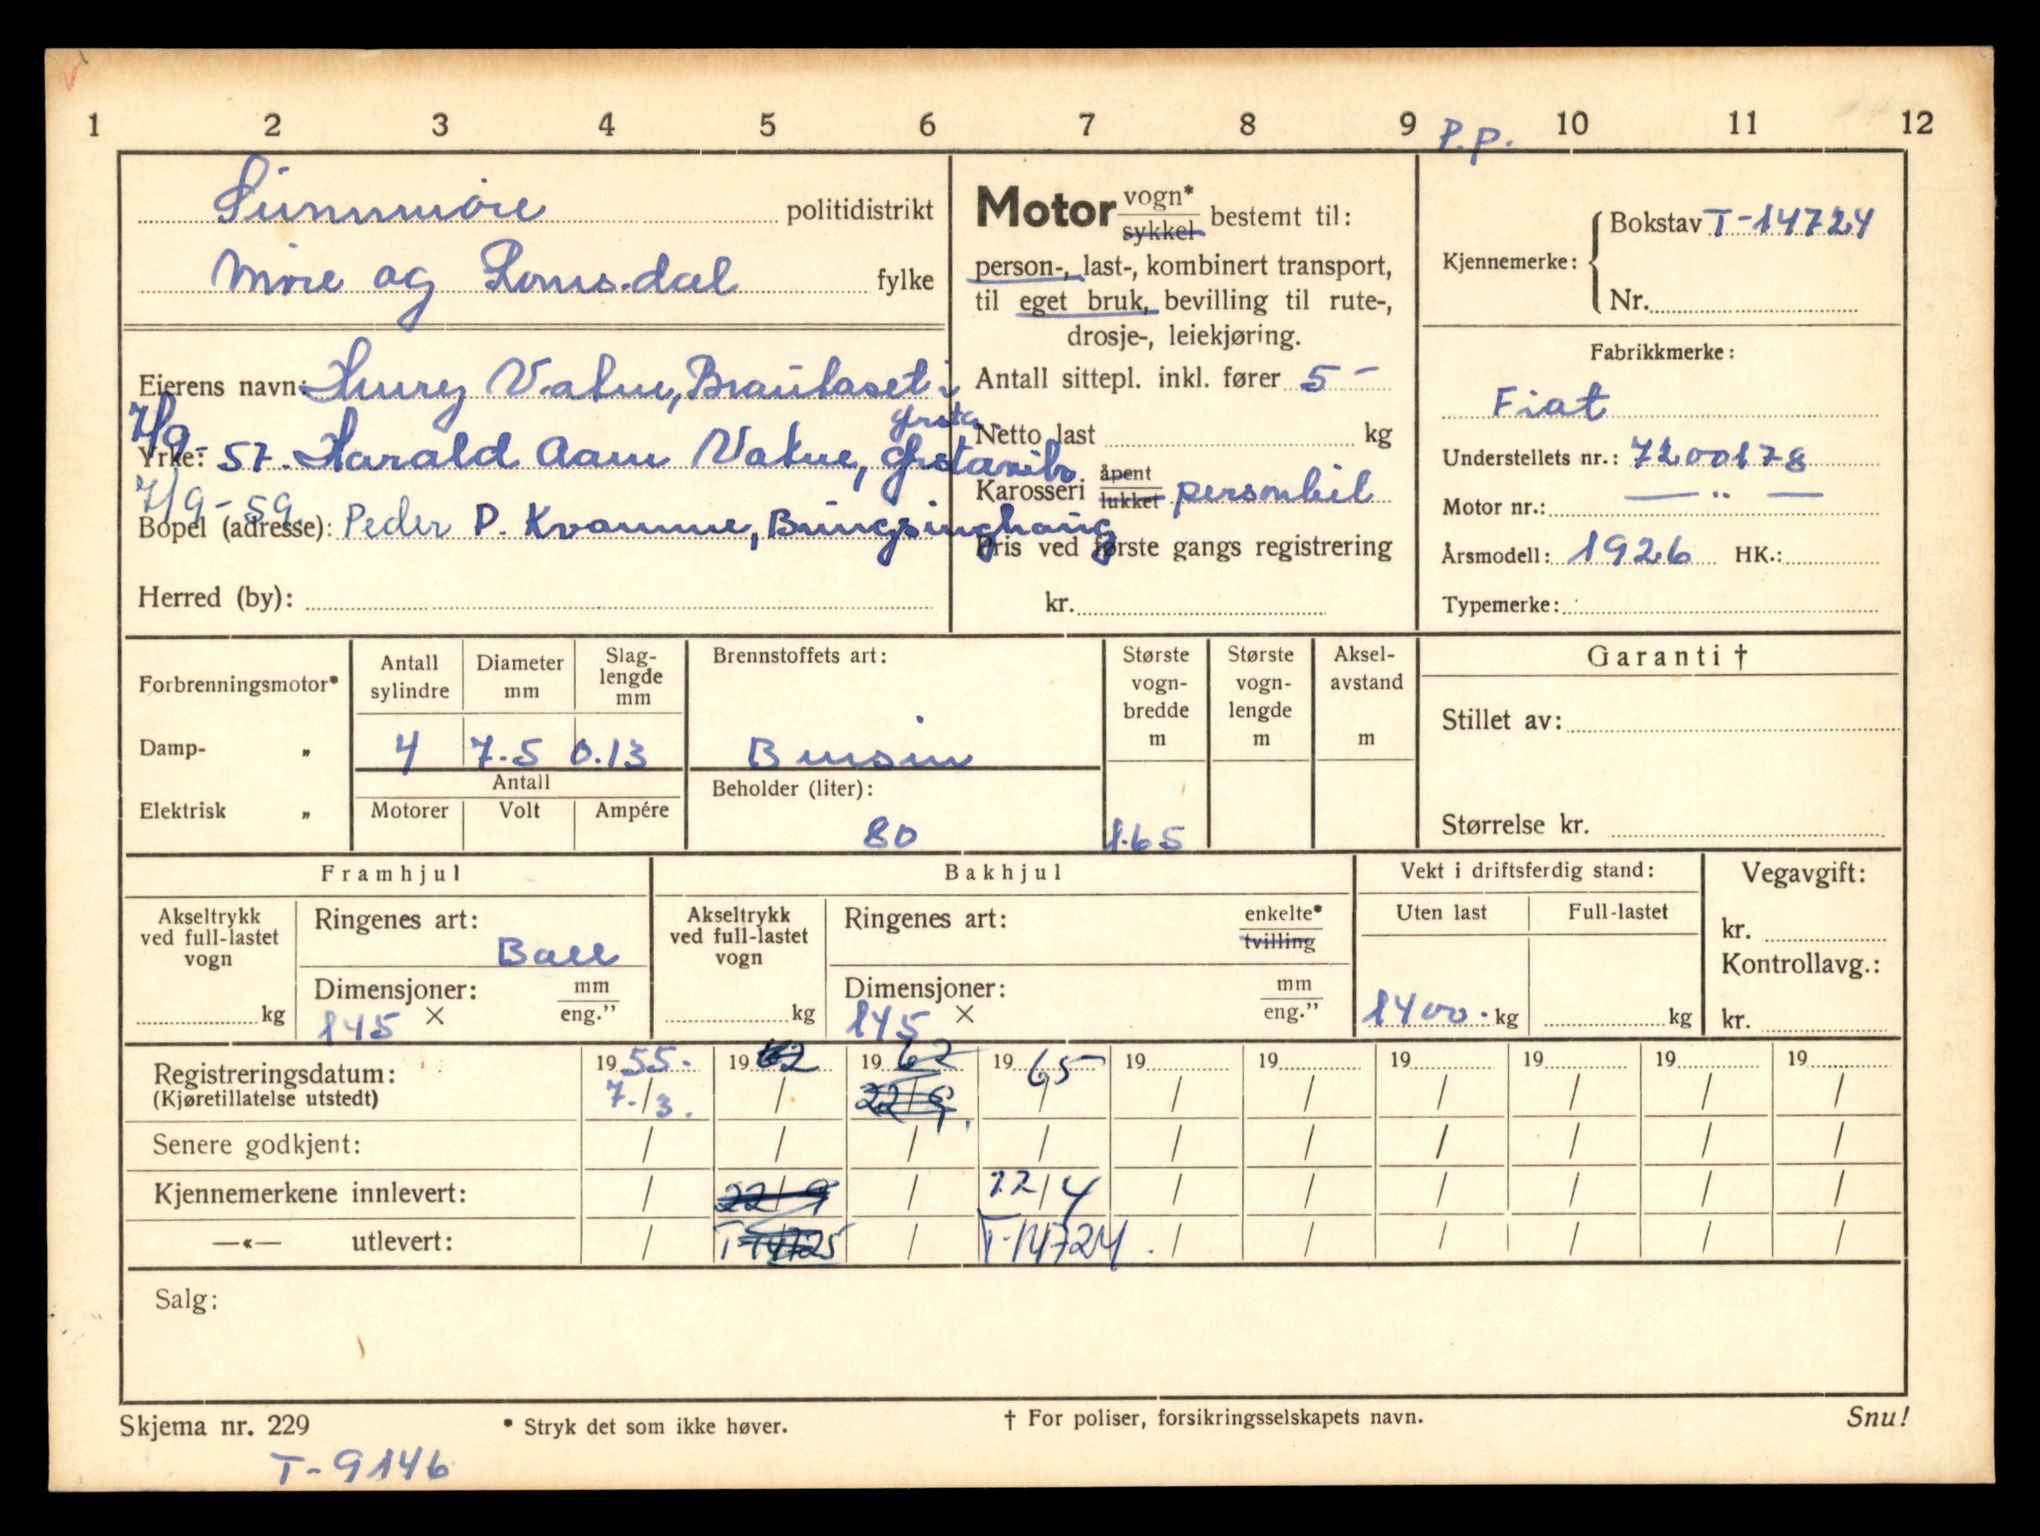 1 2 3 4 5 6 7 8 9 P.P. 10 11 12
Sunnmøre politidistrikt
Møre og Romsdal fylke
Eierens navn: Vatne,
7/9-57. Harald Aam Vatne, Ørstavik
Yrke:
7/9-59. Peder P. Kvamme, Bungsinghaug
Bopel (adresse):
Herred (by):
Motor vogn* / sykkel bestemt til:
person-, last-, kombinert transport,
til eget bruk, bevilling til rute-,
drosje-, leiekjøring.
Antall sittepl. inkl. fører 5 -
Netto last kg
Karosseri åpent / lukket personbil
Pris ved første gangs registrering
kr.
Kjennemerke: Bokstav T-14724
Nr.
Fabrikkmerke:
Fiat
Understellets nr.: 7200178
Motor nr.: — " —
Årsmodell: 1926 HK.:
Typemerke:
Forbrenningsmotor*
Damp- „
Elektrisk „
Antall sylindre Diameter mm Slag-lengde mm
4 7.5 0.13
Antall
Motorer Volt Ampére
Brennstoffets art:
Bensin
Beholder (liter):
80
Største vogn-bredde m
1.65
Største vogn-lengde m
Aksel-avstand m
Garanti †
Stillet av:
Størrelse kr.
Framhjul
Akseltrykk ved full-lastet vogn
kg
Ringenes art:
Ball
Dimensjoner: mm / eng."
145 ×
Bakhjul
Akseltrykk ved full-lastet vogn
kg
Ringenes art: enkelte* / tvilling
Dimensjoner: mm / eng."
145 ×
Vekt i driftsferdig stand:
Uten last Full-lastet
1400. kg kg
Vegavgift:
kr.
Kontrollavg.:
kr.
Registreringsdatum: 1955. 1962 1962 1965 19 19 19 19 19 19
(Kjøretillatelse utstedt) 7./3. / 22/9. / / / / / / /
Senere godkjent: / / / / / / / / / /
Kjennemerkene innlevert: / 22/9 / 22/4 / / / / / /
—«— utlevert: / T-14725 / T-14724. / / / / / /
Salg:
Skjema nr. 229 * Stryk det som ikke høver. † For poliser, forsikringsselskapets navn. Snu!
T-9146